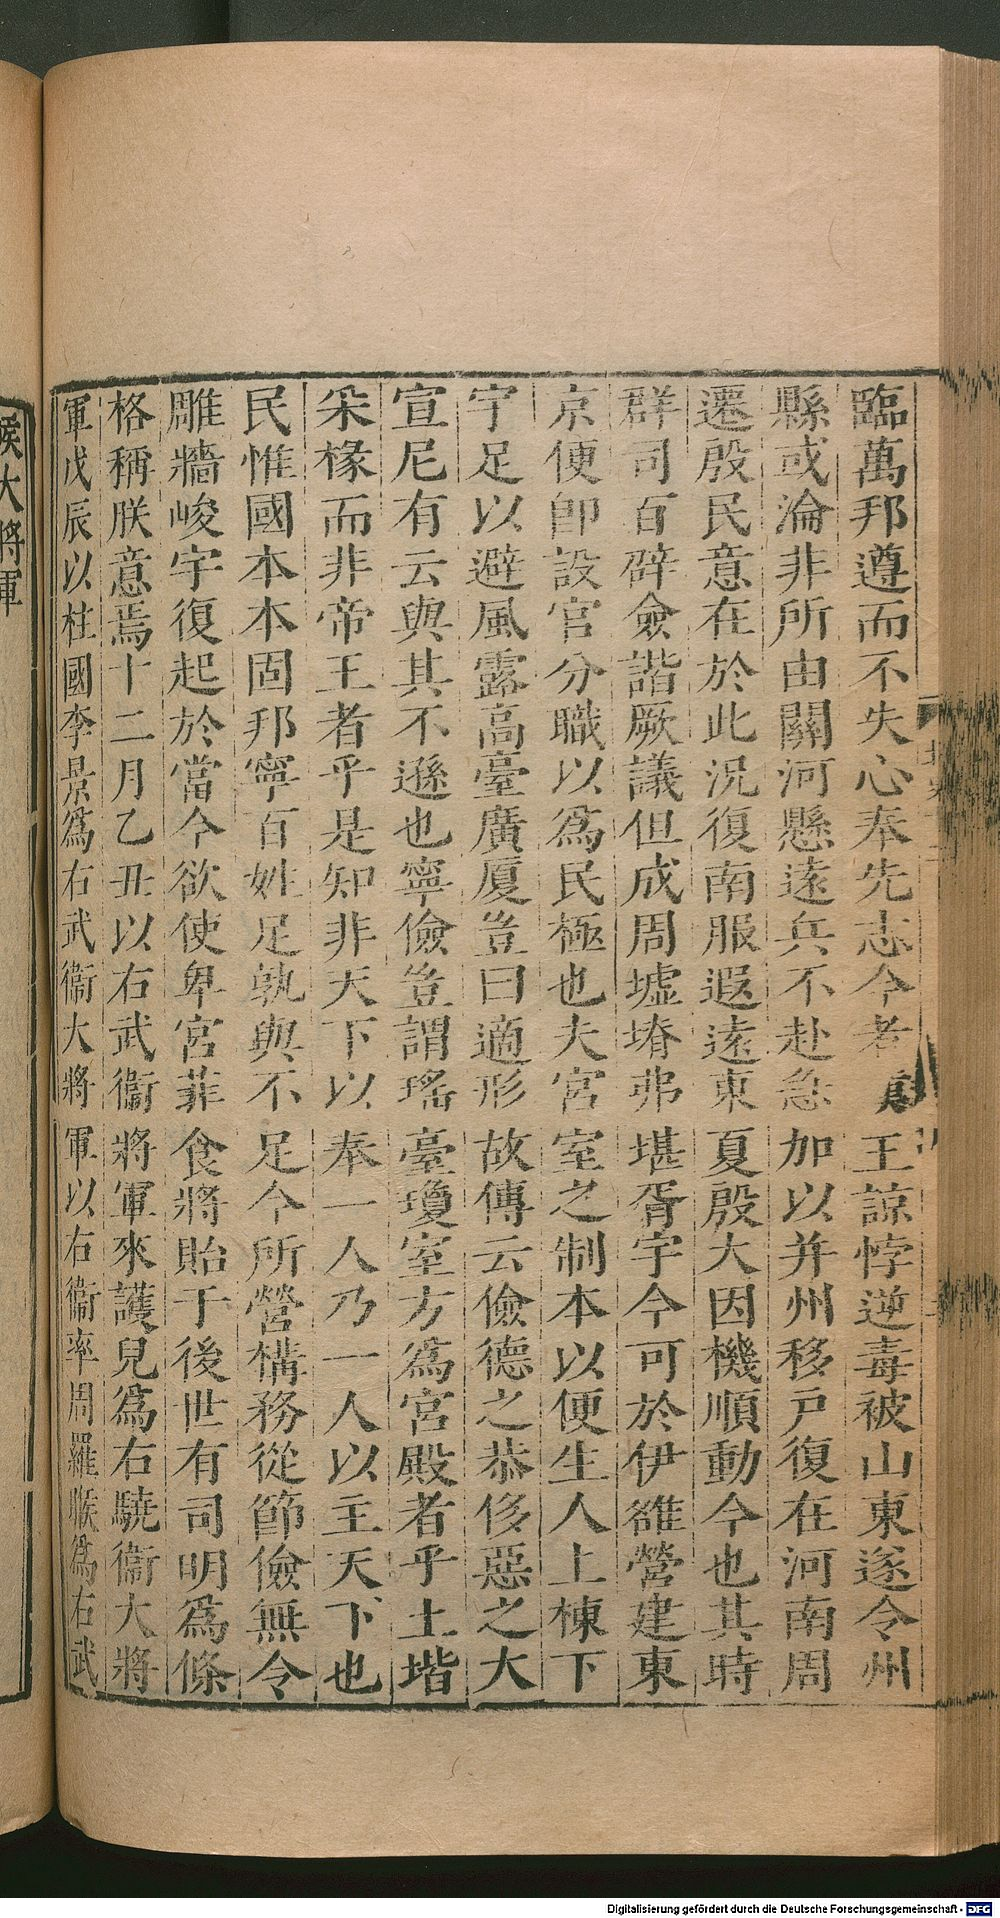 臨萬邦遵而不失心奉先志今者王諒悖逆毒被山東遂令州
縣或淪非所由關河懸遠兵不赴急加以并州移戶復在河南周
遷殷民意在於此況復南服遐遠東夏殷大因機順動今也其時
群司百辟僉諧厥議但成周墟塉弗堪胥宇今可於伊雒營建東
京便卽設官分職以爲民極也夫宮室之制本以便生人上棟下
宇足以避風露高臺廣厦豈曰適形故傳云儉德之恭侈惡之大
宣尼有云與其不遜也寧儉豈謂瑤臺瓊室方爲宮殿者乎土堦
采椽而非帝王者乎是知非天下以奉一人乃一人以主天下也
民惟國本本固邦寧百姓足孰與不足今所營構務從節儉無令
雕牆峻宇復起於當今欲使卑宮菲食將貽于後世有司明爲條
格稱朕意焉十二月乙丑以右武衞將軍來護兒爲右驍衞大將
軍戊辰以柱國李景爲右武衞大將軍以右衞率周羅睺爲右武
候大將軍
Digitalisierung gefördert durch die Deutsche Forschungsgemeinschaft - DFG